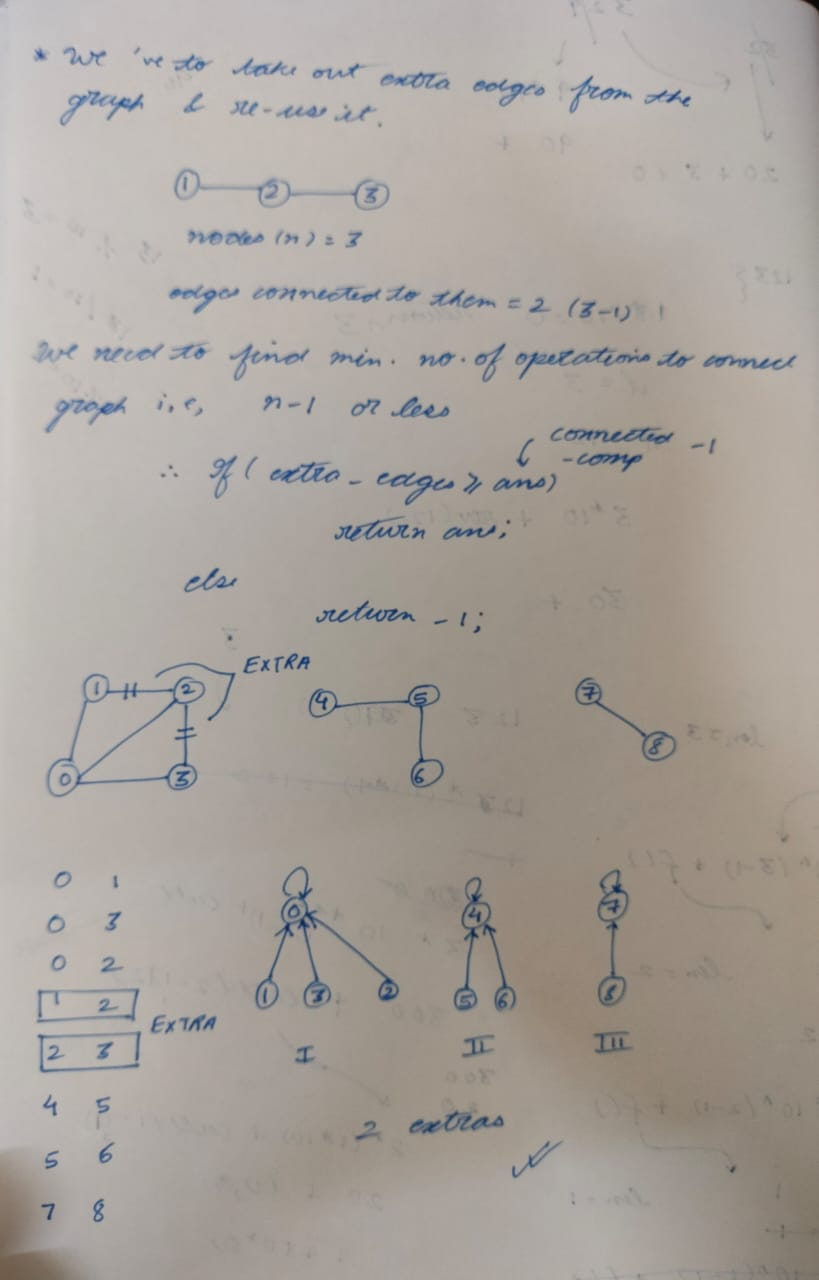 * We 've to take out extra edges from the
graph & re-use it.
1 2 3
nodes (n) = 3
edges connected to them = 2 (3-1)
We need to find min. no. of operations to connect
graph i.e, n-1 or less
connected -1
-comp
∴ If ( extra - edges ⩾ ans)
return ans;
else
return -1;
EXTRA
1 2 4 5 7
0 3 6 8
0 1
0 3
0 2
1 2
EXTRA
2 3
4 5
5 6
7 8
0 4 7
1 3 2 5 6 8
I II III
2 extras